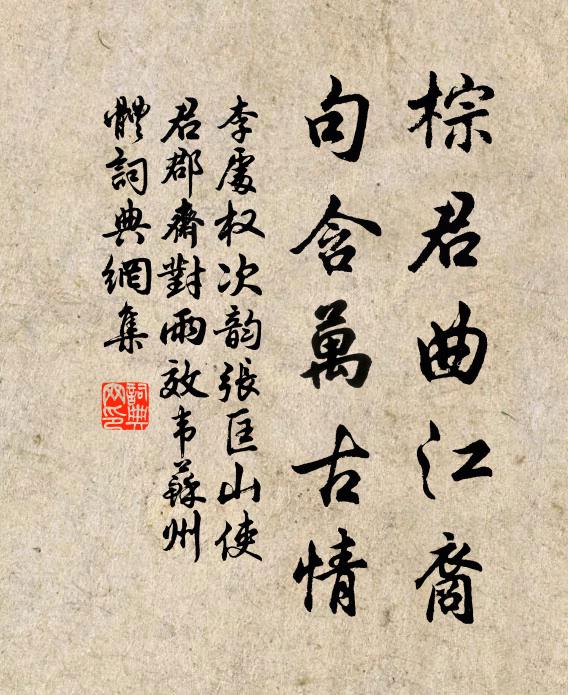 棕君曲江裔
句含萬古情
李處权次韵張匡山使
君郡齋對雨效韦蘇州
體詞典網集
詞典
网印